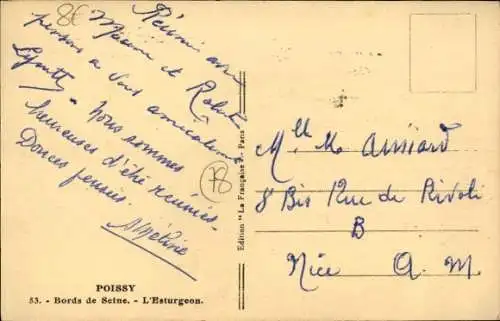 8€
Réunis avec
Maxime et Robert
pensons à vous amicalement
Nous sommes
heureuses d'être réunies.
Douces pensées.
78
POISSY
53. - Bords de Seine. - L'Esturgeon.
Edition "La Française". - Paris
Mlle M Amiard
8 Bis Rue de Rivoli
B
Nice A. M.